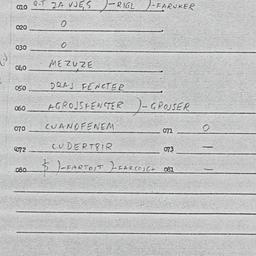 010 O.T ZA VJES )-RIGL )-FARUKER
020 0
030 0
040 MEZUZE
050 DRAJ FENCTER
060 AGROJSFENSTER )-GROJSER
070 CUANDFENEM 071 0
072 CUDERTRIR 073 —
080 $ )-FARTOJT 081 —